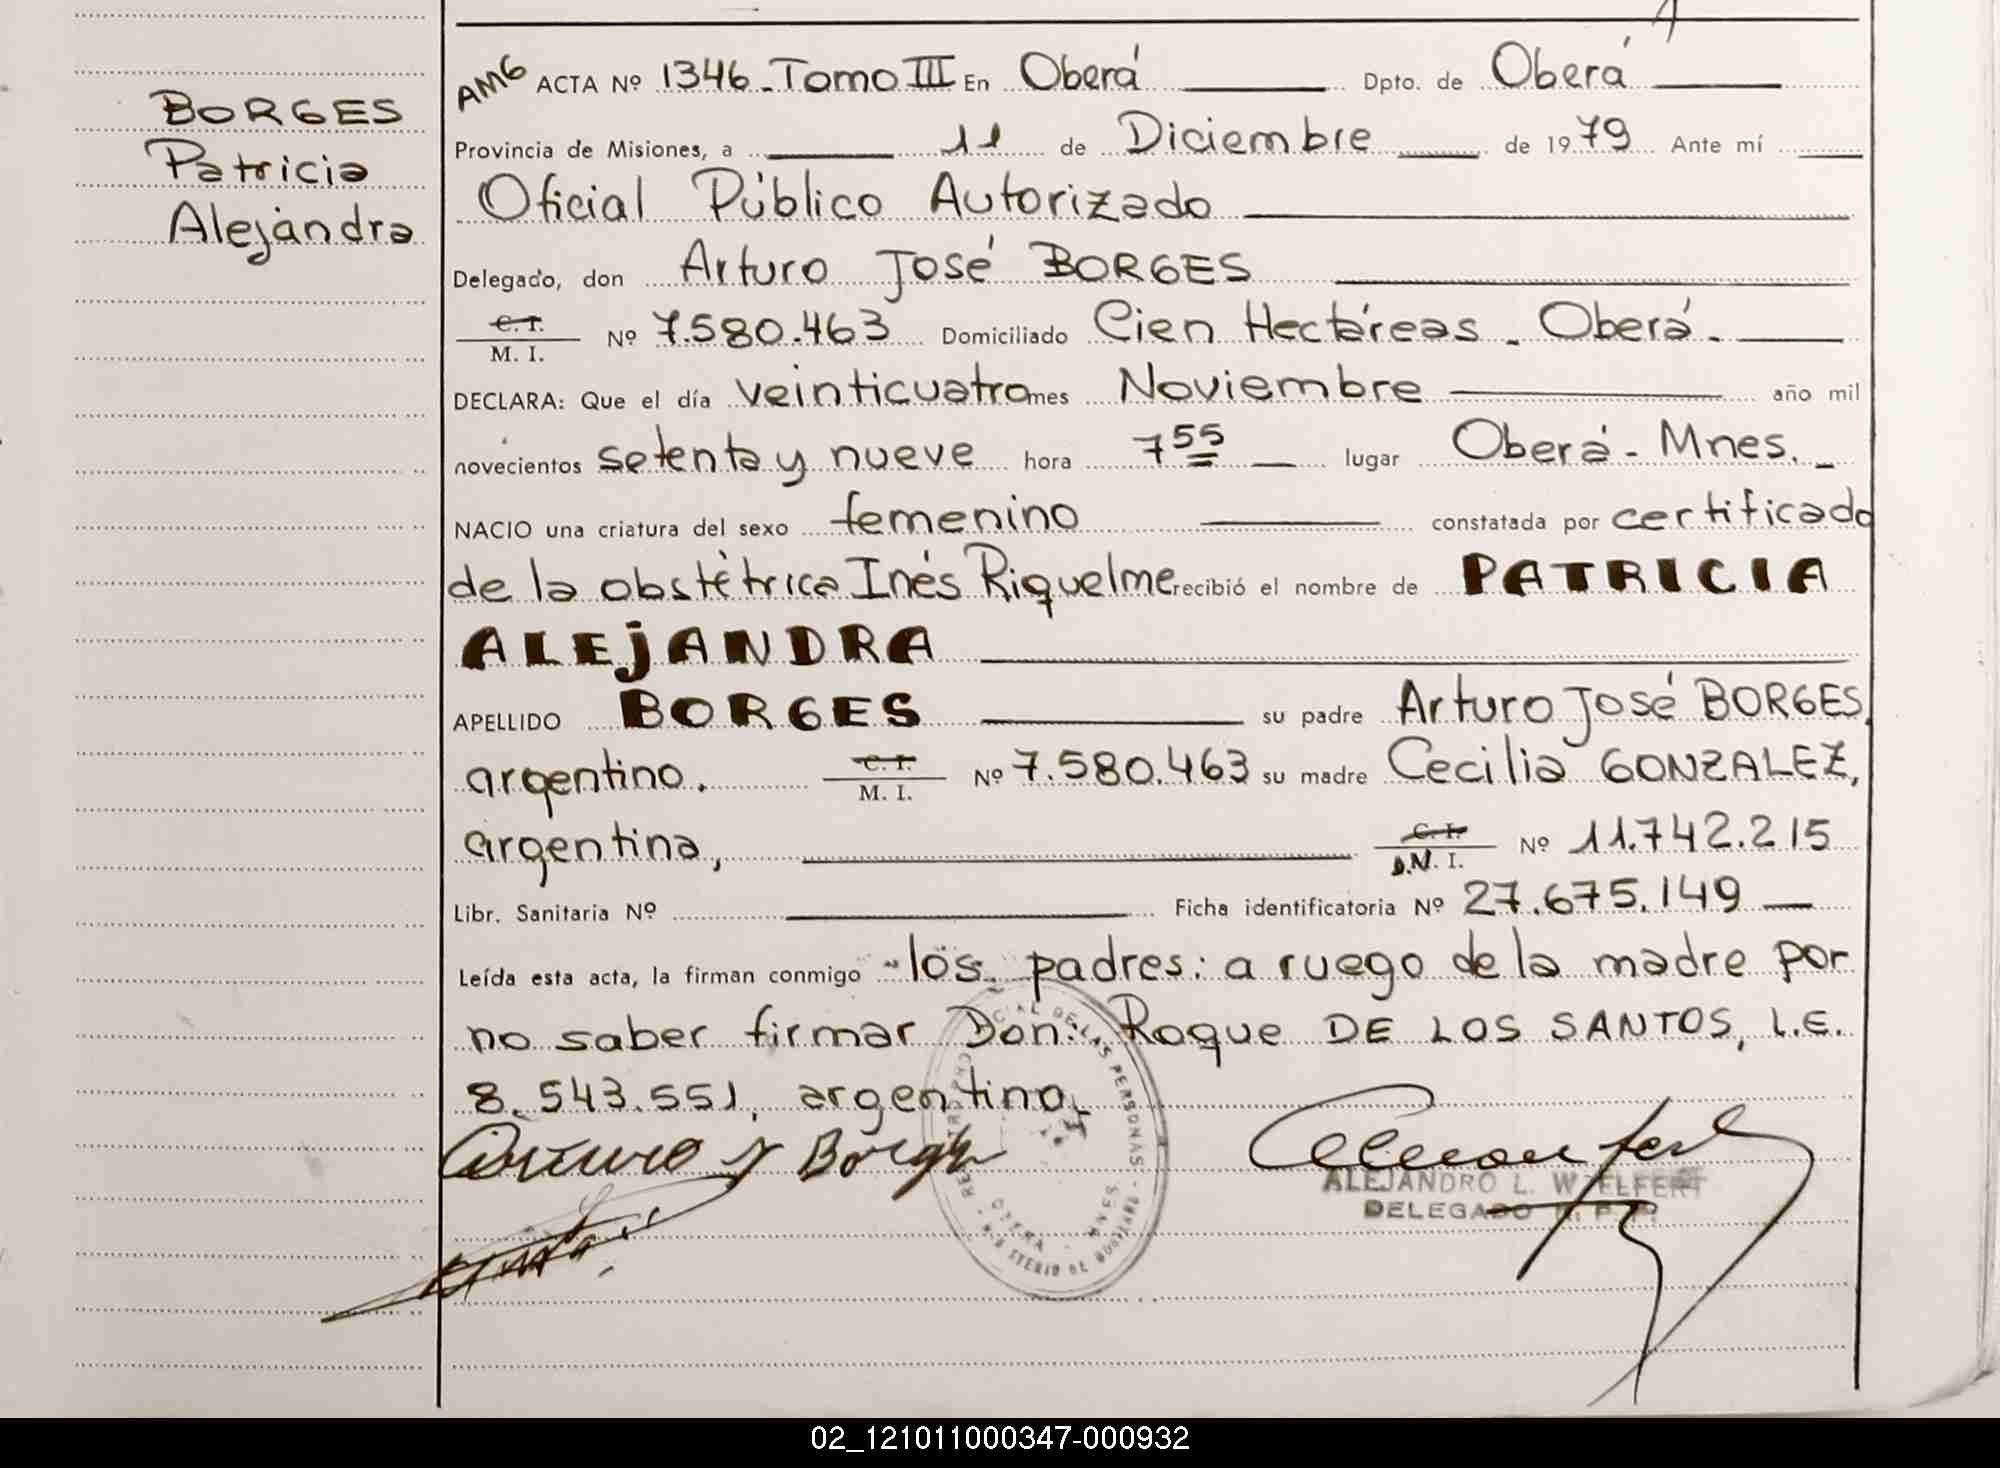 BORGES
Patricia
Alejandra
AMG ACTA Nº 1346 - Tomo III En Oberá Dpto. de Oberá
Provincia de Misiones, a 11 de Diciembre de 1979 Ante mí
Oficial Público Autorizado
Delegado, don Arturo José BORGES
C. I.
M. I. Nº 7.580.463 Domiciliado Cien Hectáreas - Oberá -
DECLARA: Que el día veinticuatro mes Noviembre año mil
novecientos setenta y nueve hora 7 55 lugar Oberá - Mnes. -
NACIO una criatura del sexo femenino constatada por certificado
de la obstétrica Inés Riquelme recibió el nombre de PATRICIA
ALEJANDRA
APELLIDO BORGES su padre Arturo José BORGES,
argentino. C. I.
M. I. Nº 7.580.463 su madre Cecilia GONZALEZ,
argentina, C. I.
D.N. I. Nº 11.742.215
Libr. Sanitaria Nº Ficha identificatoria Nº 27.675.149
Leída esta acta, la firman conmigo los padres: a ruego de la madre por
no saber firmar Don: Roque DE LOS SANTOS, L.E.
8.543.551, argentino
Arturo J Borges
ALEJANDRO L. WELFERT
DELEGADO R. P. P.
DE LAS PERSONAS
OBERA - MNES.
02_121011000347-000932